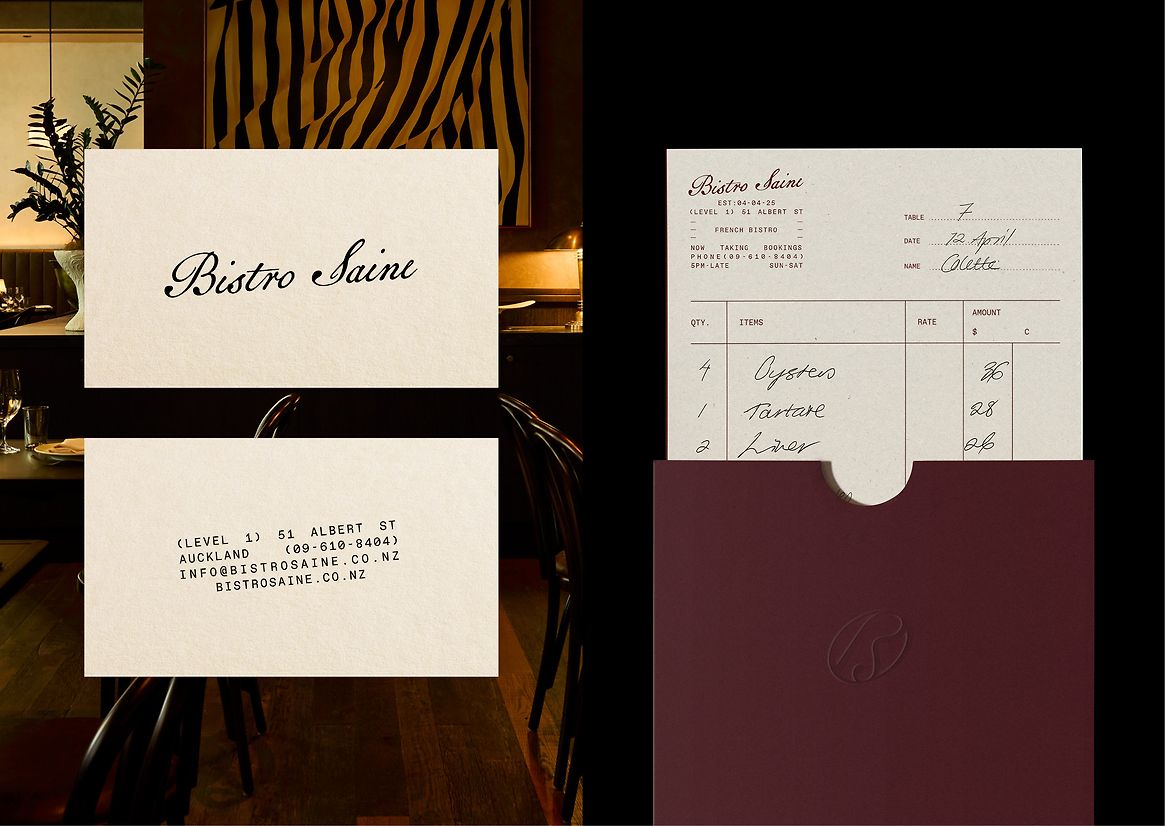 Bistro Saine
(LEVEL 1) 51 ALBERT ST
AUCKLAND (09-610-8404)
INFO@BISTROSAINE.CO.NZ
BISTROSAINE.CO.NZ
Bistro Saine
EST:04-04-25
(LEVEL 1) 51 ALBERT ST
FRENCH BISTRO
NOW TAKING BOOKINGS
PHONE(09-610-8404)
5PM-LATE SUN-SAT
TABLE 7
DATE 12 April
NAME Colette
QTY. ITEMS RATE AMOUNT
$ C
4 Oysters 36
1 Tartare 28
2 Liver 26
BS